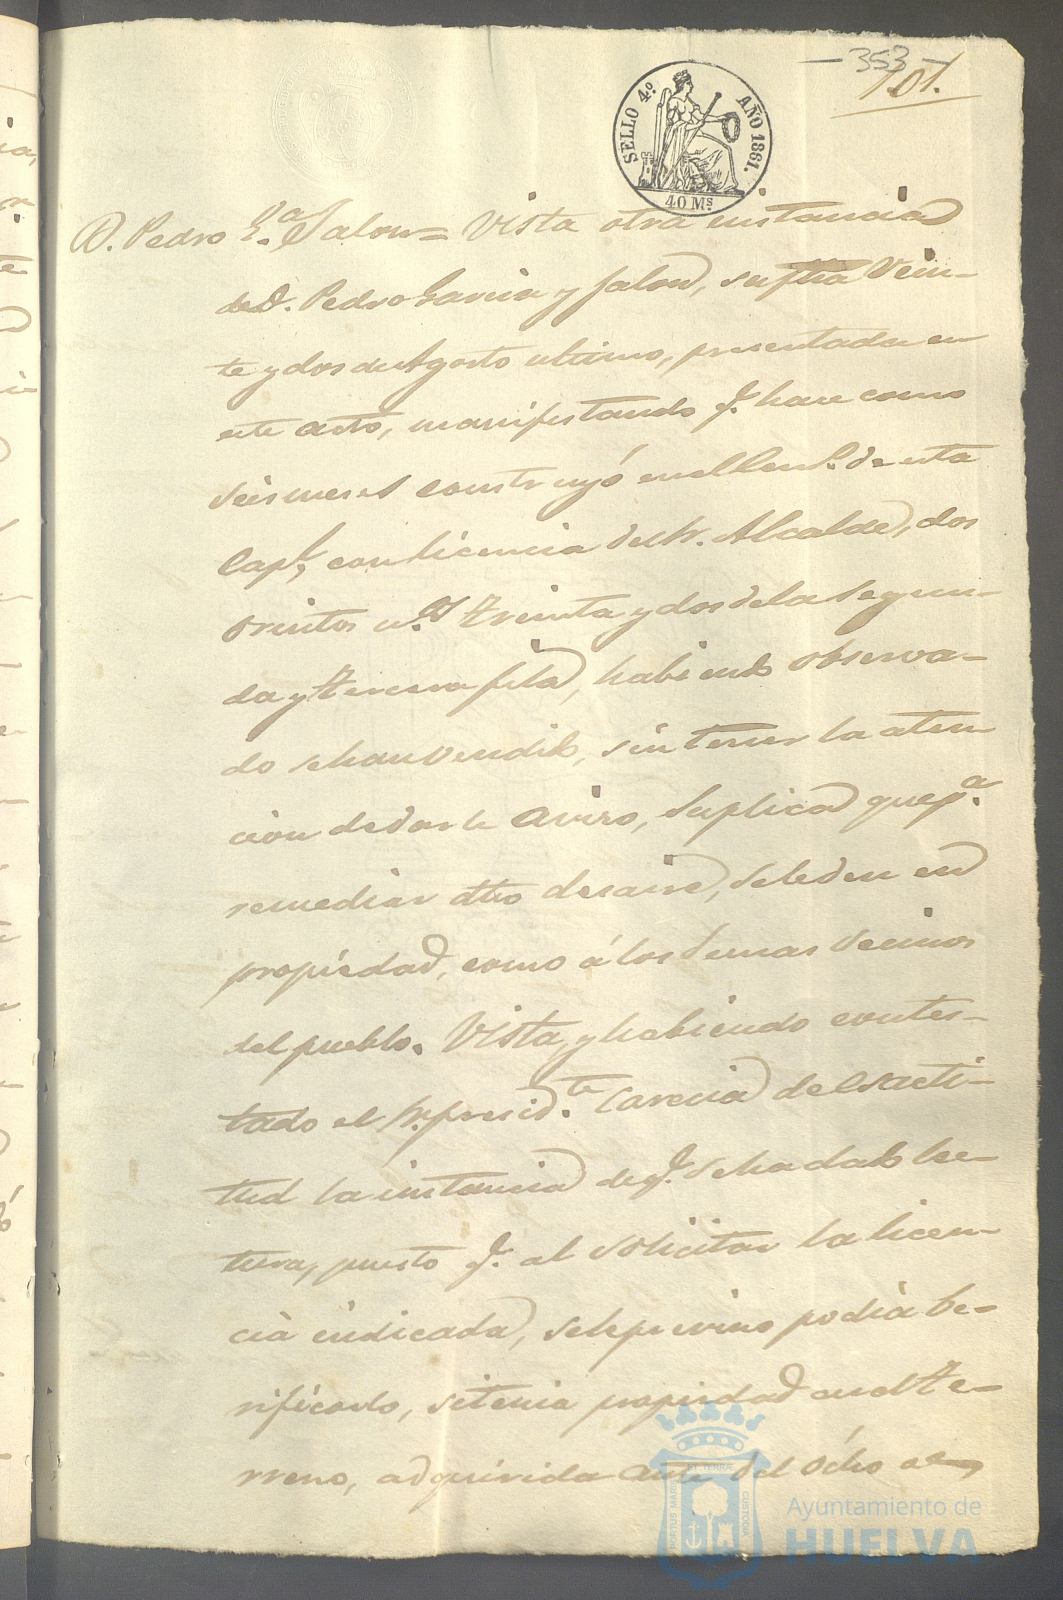 - 353 -
101.
SELLO 4.º AÑO 1861.
40 Ms
D. Pedro G.ª Jalon = Vista otra instancia
de D. Pedro Garcia y Jalon, su fha Vein-
te y dos de Agosto ultimo, presentada en
este acto, manifestando q.e hace como
seis meses construyó en el Cem.o de esta
Cap.l, con licencia del Sr. Alcalde, dos
nichos n.os treinta y dos de la segun-
da y tercera fila, habiendo observa-
do se han vendido, sin tener la aten-
cion de darle aviso, Suplica que p.a
remediar dho desaire, se le den en
propiedad, como á los demas vecinos
del pueblo. Vista, y habiendo contes-
tado el Sr. presid.te carecia de esacti-
tud la instancia de q.e se ha dado lec-
tura, puesto q.e al solicitar la licen-
cia indicada, se le previno podia be-
rificarlo, si tenia propiedad en el te-
rreno, adquirida ante del ócho de
PORTUS MARIS ET TERRAE CUSTODIA
Ayuntamiento de
HUELVA